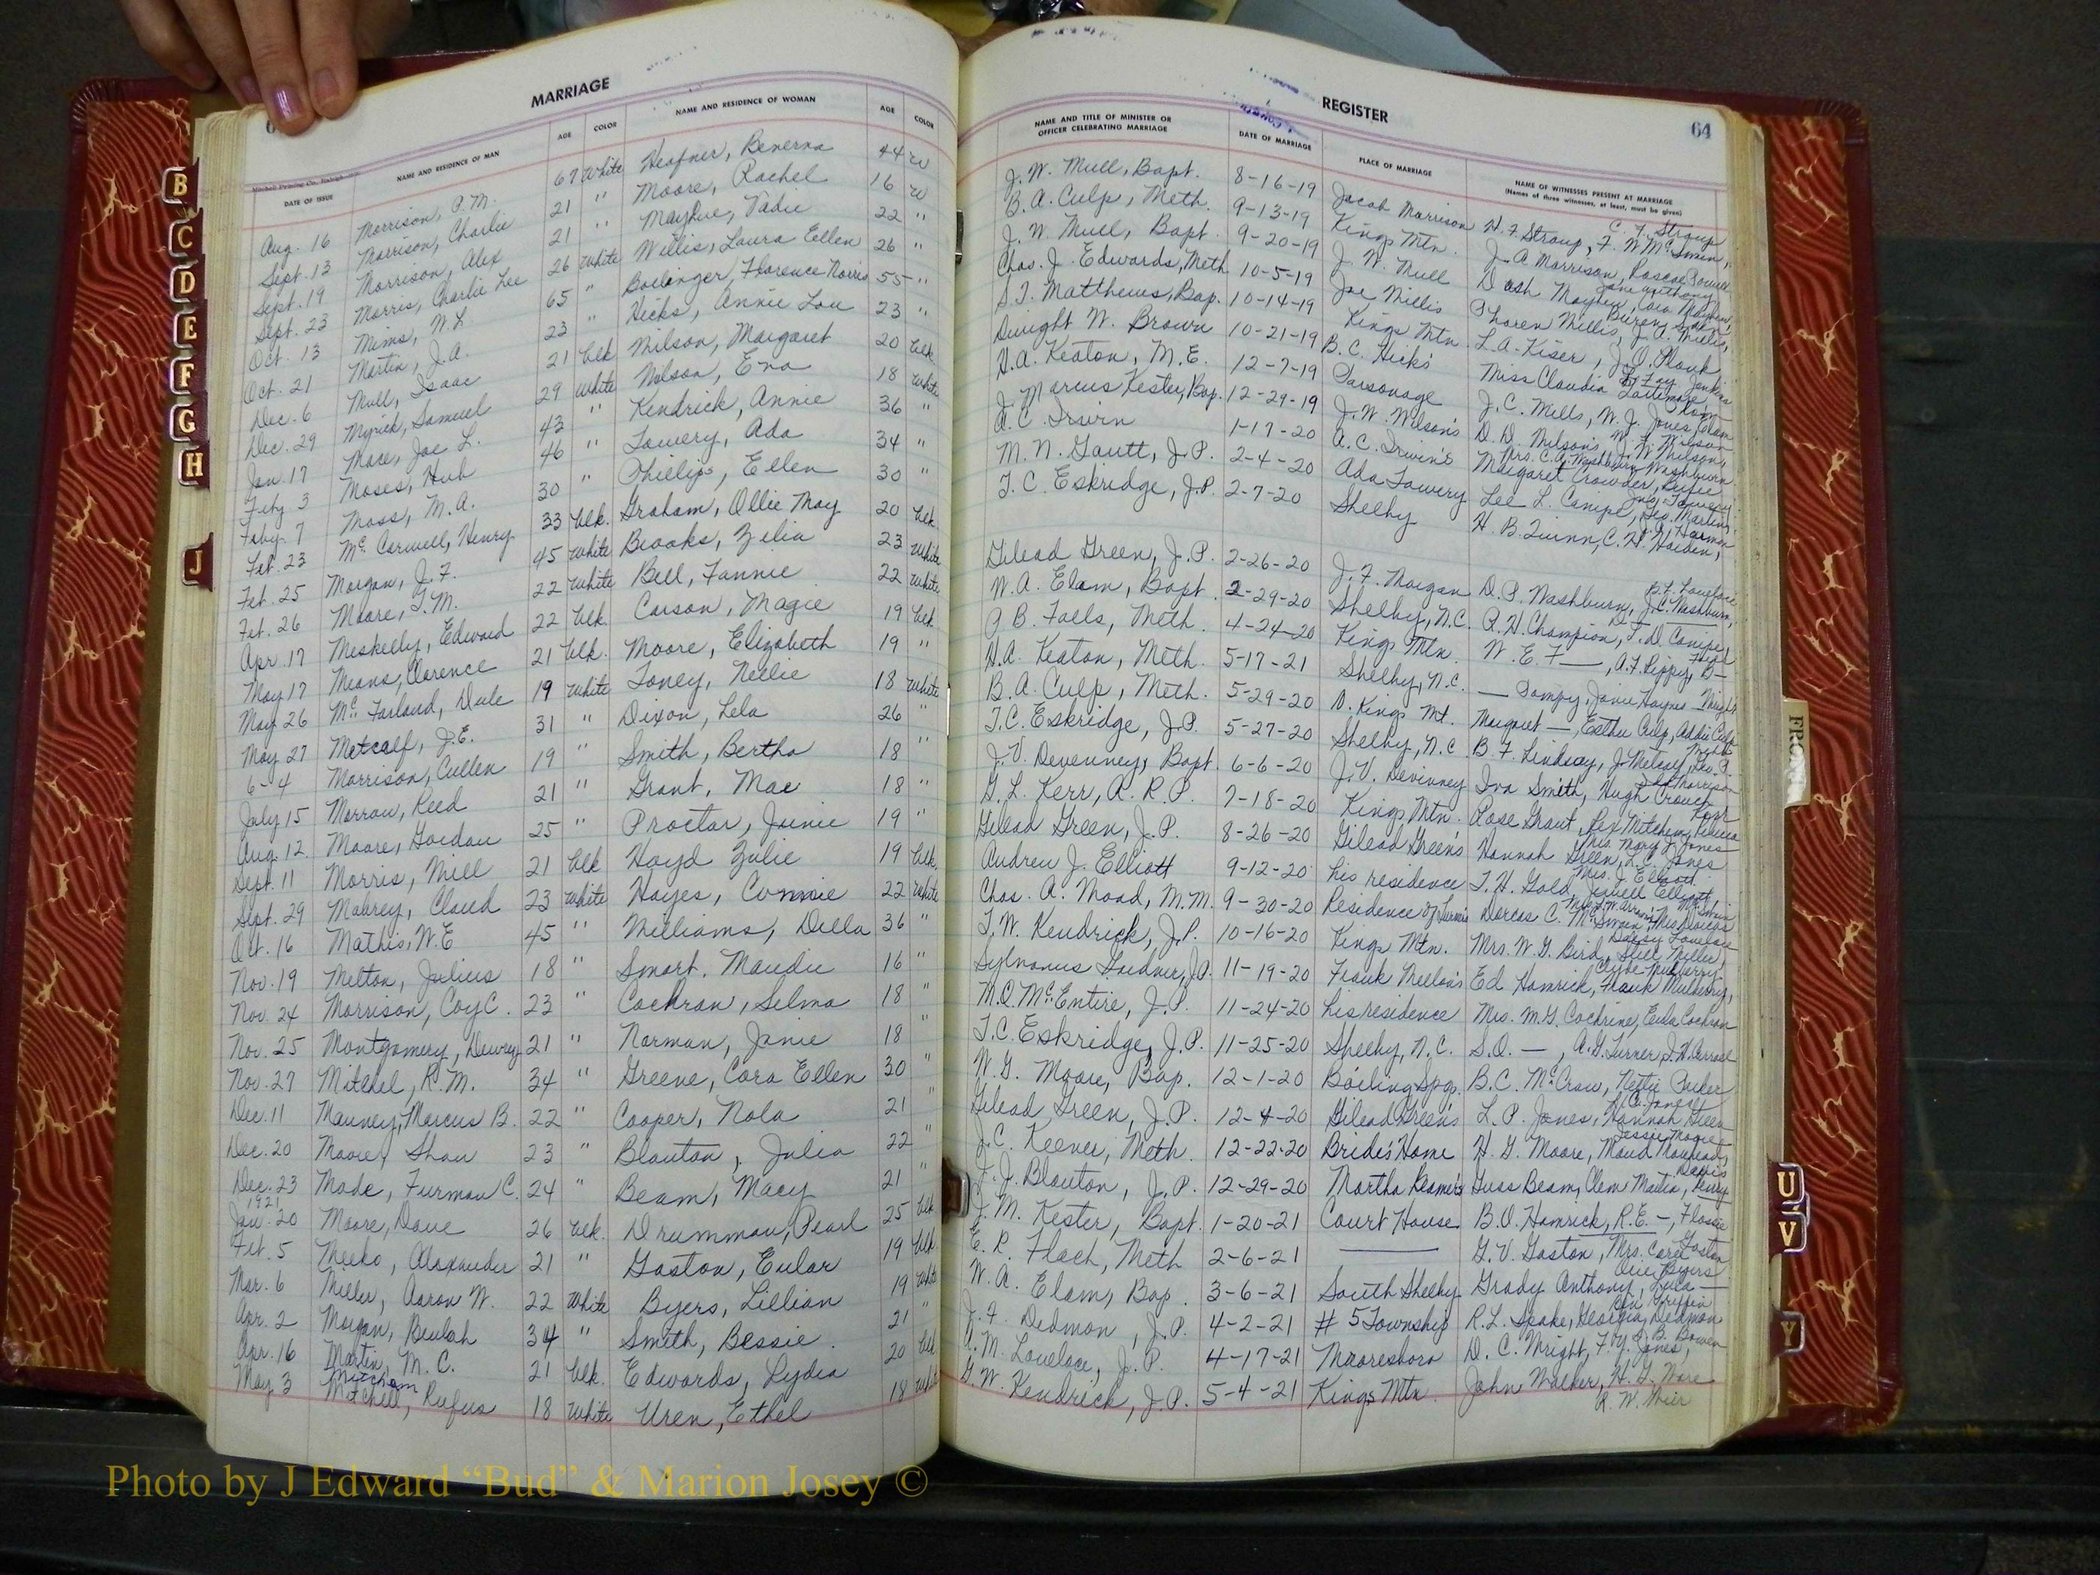 MARRIAGE
DATE OF ISSUE NAME AND RESIDENCE OF MAN AGE COLOR NAME AND RESIDENCE OF WOMAN AGE COLOR
Aug. 16 Morrison, P. M. 67 White Heafner, 44 W
Sept. 13 Morrison, Charlie 21 " Moore, Rachel 16 W
Sept. 19 Morrison, Alex 21 " Mayhue, 22 "
Sept. 23 Morris, Charlie Lee 26 White Willis, Laura Ellen 26 "
Oct. 13 Mims, W. L 65 " Florence Norris 55 "
Oct. 21 Martin, J. A. 23 " Hicks, Annie Lou 23 "
Dec. 6 Mull, Isaac 21 blk Wilson, Margaret 20 blk
Dec. 29 Myrick, Samuel 29 White Wilson, Eva 18 White
Jan. 17 Mace, Joe L. 43 " Kendrick, Annie 36 "
Feby 3 Moses, Hub 46 " Towery, Ada 34 "
Feby. 7 Moss, M. A. 30 " Phillips, Ellen 30 "
Feb. 23 Mc Carwell, Henry 33 blk. Graham, Ollie May 20 blk.
Feb. 25 Morgan, J. F. 45 White Brooks, Zilia 23 White
Feb. 26 Moore, T. M. 22 White Bell, Fannie 22 White
Apr. 17 Meskelly, Edward 22 blk. Carson, Magie 19 blk
May 17 Means, Clarence 21 blk. Moore, Elizabeth 19 "
May 26 Mc Farland, Dule 19 White Toney, Nellie 18 White
May 27 Metcalf, J. E. 31 " Dixon, Lela 26 "
6-4 Morrison, Cullen 19 " Smith, Bertha 18 "
July 15 Morrow, Reed 21 " Grant, Mae 18 "
Aug. 12 Moore, Gordan 25 " Proctor, Jainie 19 "
Sept. 11 Morris, Will 21 blk Hoyd Zulie 19 blk.
Sept. 29 Mabrey, Claud 23 White Hayes, Connie 22 White
Oct. 16 Mathis, W. E 45 " Williams, Della 36 "
Nov. 19 Melton, Julius 18 " Smart, Maudie 16 "
Nov. 24 Morrison, Coy C. 23 " Cochran, Selma 18 "
Nov. 25 Montgomery, Dewey 21 " Norman, Janie 18 "
Nov. 27 Mitchel, R. M. 34 " Greene, Cora Ellen 30 "
Dec. 11 Mauney, Marcus B. 22 " Cooper, Nola 21 "
Dec. 20 Moore, Shau 23 " Blanton, Julia 22 "
Dec. 23 Mode, Furman C. 24 " Beam, Macy 21 "
1921
Jan. 20 Moore, Dave 26 blk. Drummon, Pearl 25 blk
Feb. 5 Meeko, Alexander 21 " Gaston, Eular 19 blk.
Mar. 6 Miller, Aaron W. 22 White Byers, Lillian 19 White
Apr. 2 Morgan, Beulah 34 " Smith, Bessie 21 "
Apr. 16 Martin, M. C. 21 blk. Edwards, Lydia 20 blk
Mitcham
May 3 Mitchell, Rufus 18 White Uren, Ethel 18 White
REGISTER
64
NAME AND TITLE OF MINISTER OR OFFICER CELEBRATING MARRIAGE DATE OF MARRIAGE PLACE OF MARRIAGE NAME OF WITNESSES PRESENT AT MARRIAGE
(Names of three witnesses, at least, must be given)
J. W. Mull, Bapt. 8-16-19 Jacob Morrison W. F. Stroup, F. W. McSwain, C. F. Stroup
B. A. Culp, Meth. 9-13-19 Kings Mtn. J. A. Morrison, Roscoe
J. W. Mull, Bapt. 9-20-19 J. W. Mull Dosh Mayhew, Cora Mayhew
Chas. J. Edwards, Meth 10-5-19 Joe Willis Willis, J. A. Willis,
S. T. Matthews, Bap. 10-14-19 Kings Mtn. L. A. Kiser, J. O. Plonk
Dwight W. Brown 10-21-19 B. C. Hicks Miss Claudia Lattimore
H. A. Keaton, M. E. 12-7-19 Parsonage J. C. Mills, W. J. Jones,
J. Marcus Kester, Bap. 12-29-19 J. W. Wilson's D. D. Wilson, W. L. Wilson,
A. C. Irvin 1-17-20 A. C. Irvin's Mrs. C. A. Washburn, Washburn
M. N. Gantt, J. P. 2-4-20 Ada Towery Margaret Crowder,
T. C. Eskridge, J. P. 2-7-20 Shelby Lee L. Canipe, Geo. Martin,
H. B. Quinn, C. H. Holden,
Gilead Green, J. P. 2-26-20 J. F. Morgan D. P. Washburn, J. C. Washburn,
W. A. Elam, Bapt. 2-29-20 Shelby, N. C. R. H. Champion, T. D. Canipe
A B. Falls, Meth. 4-24-20 Kings Mtn. W. E. F—, A. F. Peppy, B—
H. A. Keaton, Meth. 5-17-21 Shelby, N. C. — Janie Haynes —
B. A. Culp, Meth. 5-29-20 N. Kings Mt. Margaret —, Esther Culp, Addie Culp
T. C. Eskridge, J. P. 5-27-20 Shelby, N. C B. F. Lindsay, J. Metcalf,
J. V. Devenney, Bapt. 6-6-20 J. V. Devinney Iva Smith, Hugh Crouch
G. L. Kerr, A. R. P. 7-18-20 Kings Mtn. Rose Grant, Rex Mitchem,
Gilead Green, J. P. 8-26-20 Gilead Green's Hannah Green, L. C. Jones
Andrew J. Elliott 9-12-20 his residence T. H. Gold, Jewell Elliott
Chas. A. Wood, M. M. 9-30-20 Residence of Dorcas C. McSwain,
I. W. Kendrick, J. P. 10-16-20 Kings Mtn. Mrs. W. G. Bird, Miller,
Sylvanus Gardner, J. P. 11-19-20 Frank Ed Hamrick, Frank Mulberry,
N. O. McEntire, J. P. 11-24-20 his residence Mrs. M. G. Cochrine, Eula Cochran
T. C. Eskridge, J. P. 11-25-20 Shelby, N. C. S. O. —, A. G. Turner,
W. G. Moore, Bap. 12-1-20 Boiling Spgs. B. C. McCraw, Nettie
Gilead Green, J. P. 12-4-20 Gilead Green's L. P. Jones, Hannah Green
J. C. Keever, Meth. 12-22-20 Bride's Home H. G. Moore, Maud
J. J. Blanton, J. P. 12-29-20 Martha Beamer's Guss Beam, Clem Martin,
J. M. Kester, Bapt. 1-20-21 Court House B. O. Hamrick, R. E. —, Flossie
E. R. Flach, Meth 2-6-21 — G. V. Gaston, Mrs. Gaston
W. A. Elam, Bap. 3-6-21 South Shelby Grady Anthony, —
J. F. Dedmon, J. P. 4-2-21 # 5 Township R. L. Spake, Georgia Dedmon
A. M. Lovelace, J. P. 4-17-21 Mooresboro D. C. Wright, F. Y. Jones,
G. W. Kendrick, J. P. 5-4-21 Kings Mtn. John Walker, H. G. Ware
R. W. Weir
B
C
D
E
F
G
H
J
U
V
Y
Photo by J Edward “Bud” & Marion Josey ©